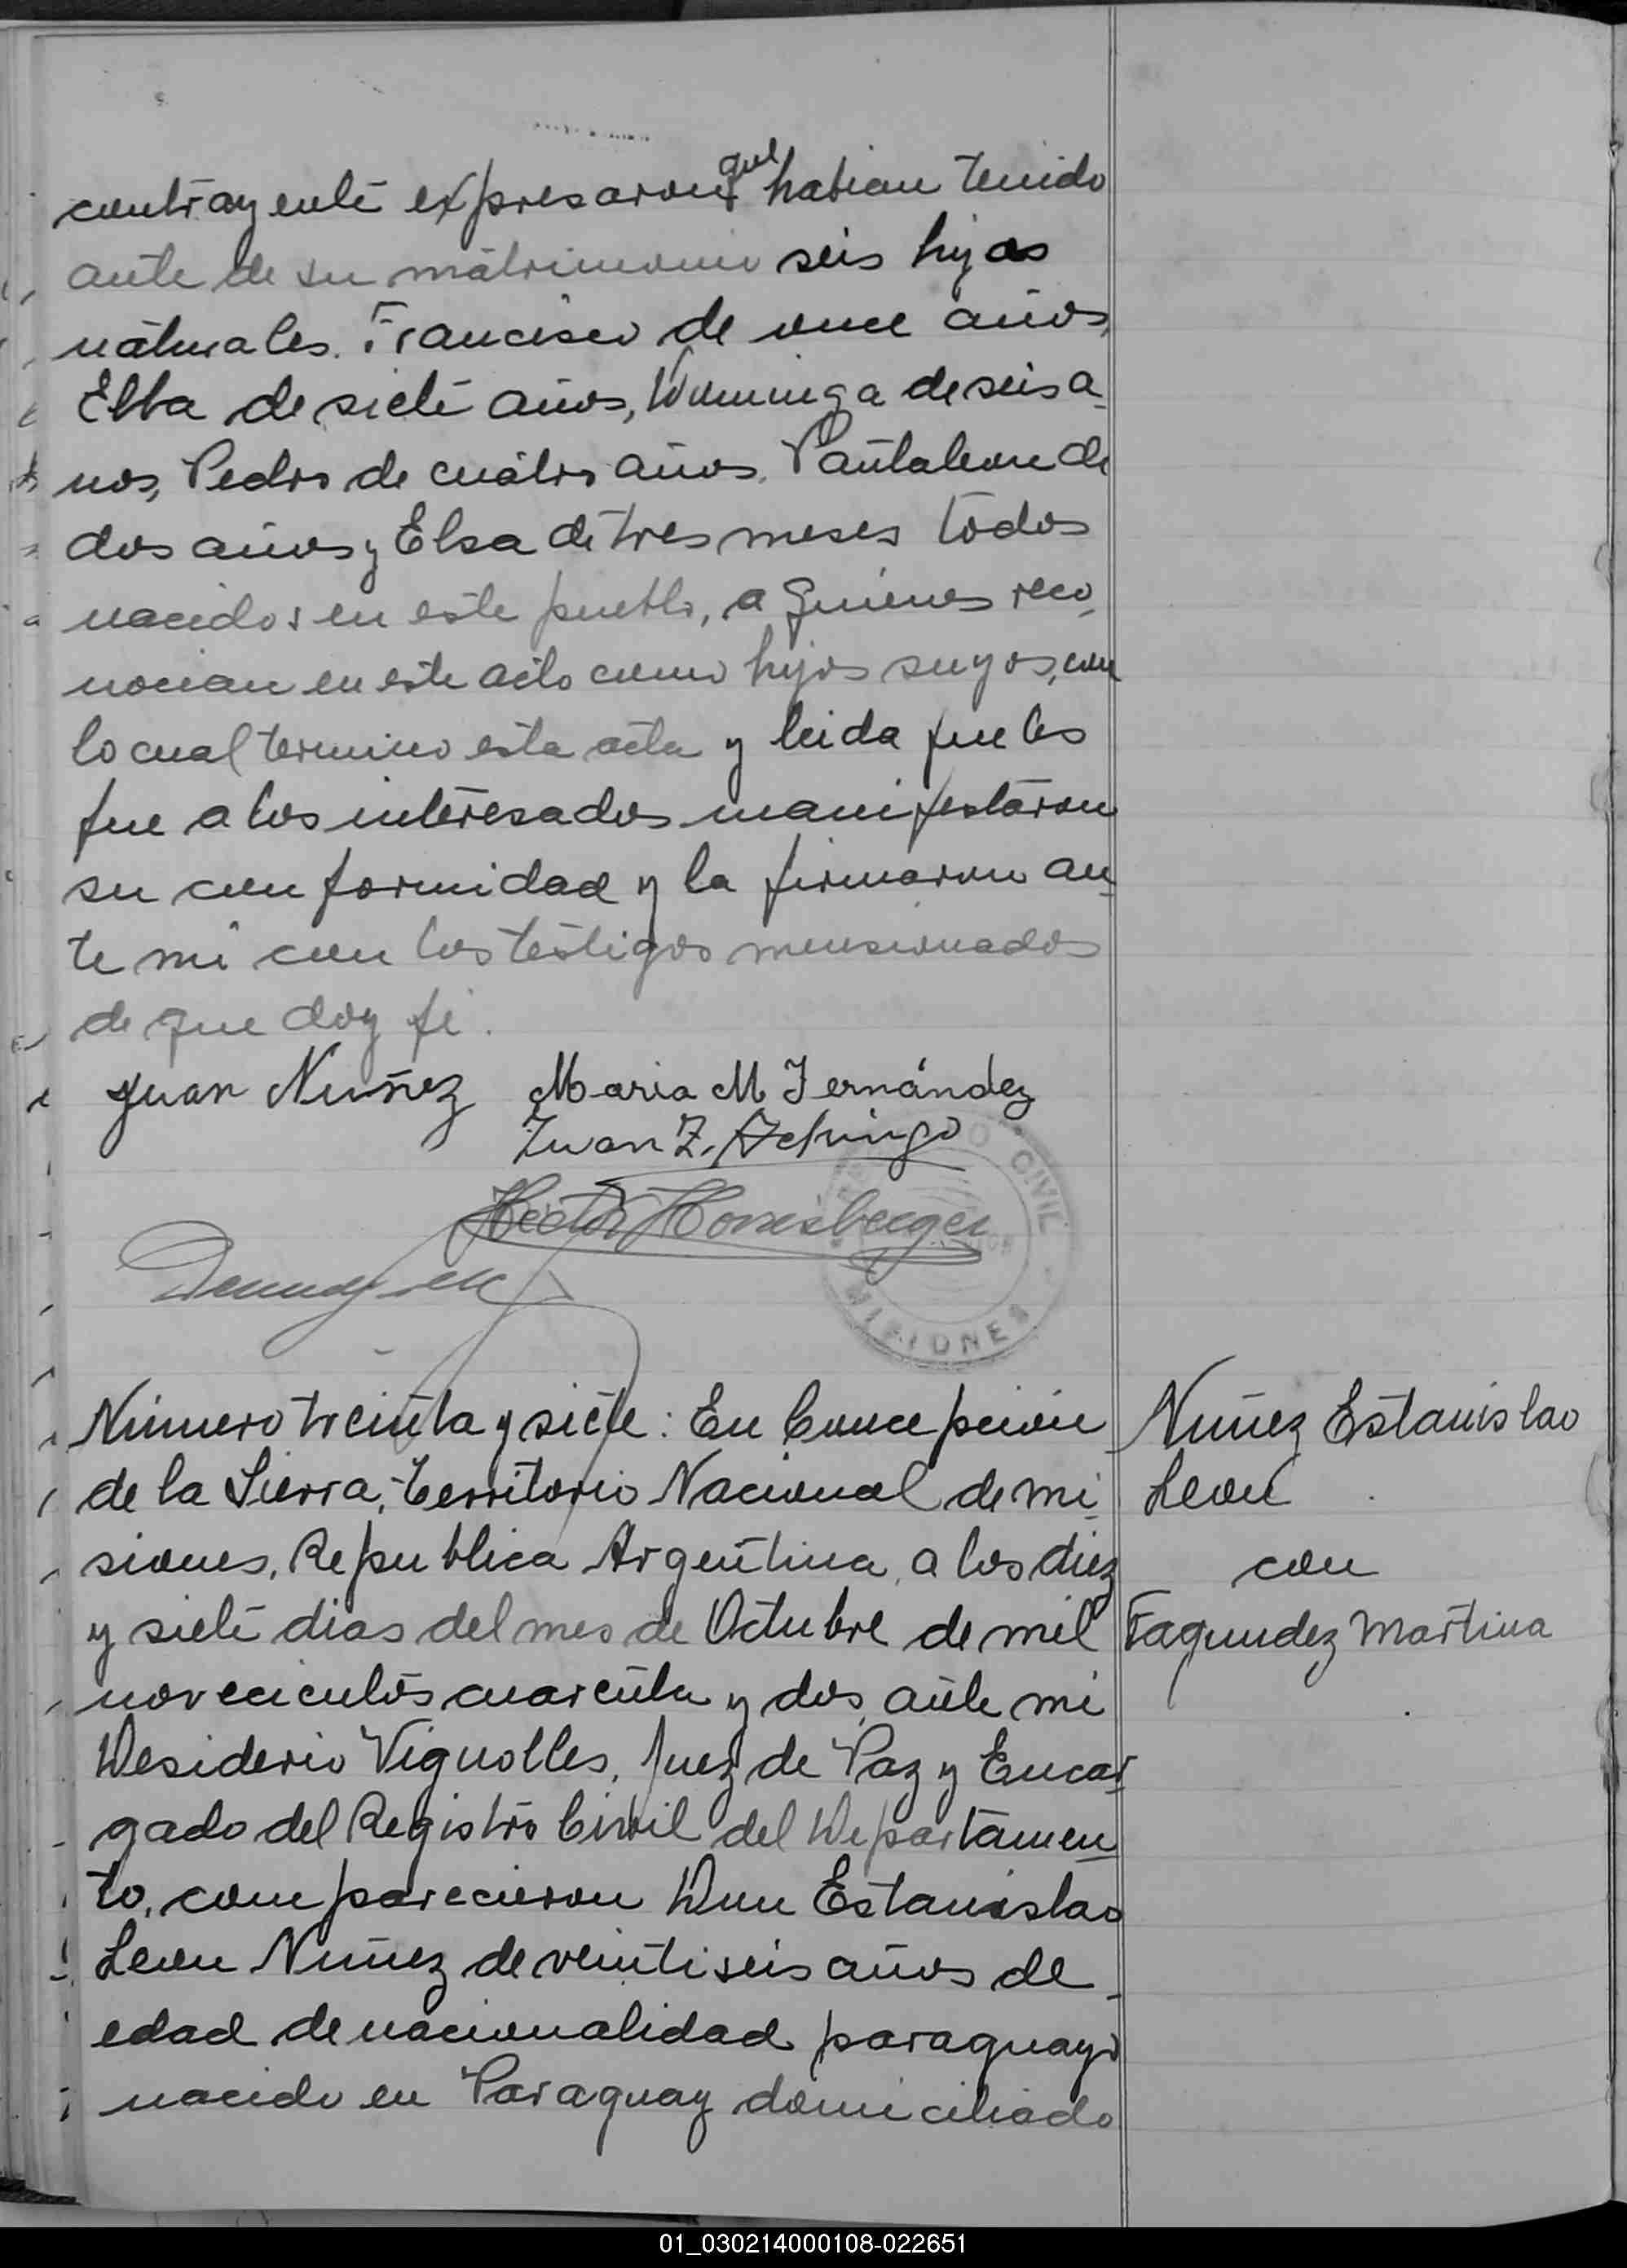 contrayente expresaron que habian tenido
ante de su matrimonio seis hijos
naturales. Francisco de once años,
Elba de siete años, Dominga de seis a-
ños, Pedro de cuatro años, Pantaleon de
dos años y Elsa de tres meses todos
nacidos en este pueblo, a quienes reco-
nocian en este acto como hijos suyos, con
lo cual termino esta acta y leida que les
fue a los interesados manifestaron
su conformidad y la firmaron an-
te mi con los testigos mensionados
de que doy fé.
Juan Nuñez Maria M Fernández
Juan Z.
Hector
REGISTRO CIVIL
MISIONES
Número treinta y siete: En Concepción
de la Sierra, Territorio Nacional de Mi-
siones, Republica Argentina, a los diez
y siete dias del mes de Octubre de mil
novecientos cuarenta y dos, ante mi
Desiderio Vignolles, Juez de Paz y Encar-
gado del Registro Civil del Departamen-
to, comparecieron Don Estanislao
Leon Nuñez de veintiseis años de
edad de nacionalidad paraguayo
nacido en Paraguay domiciliado
Nuñez Estanislao
Leon
con
Fagundez Martina
01_030214000108-022651